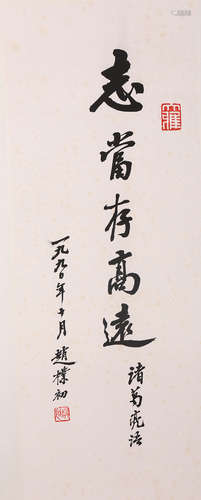 志當存高遠
諸葛亮語
一九九〇年十月趙樸初